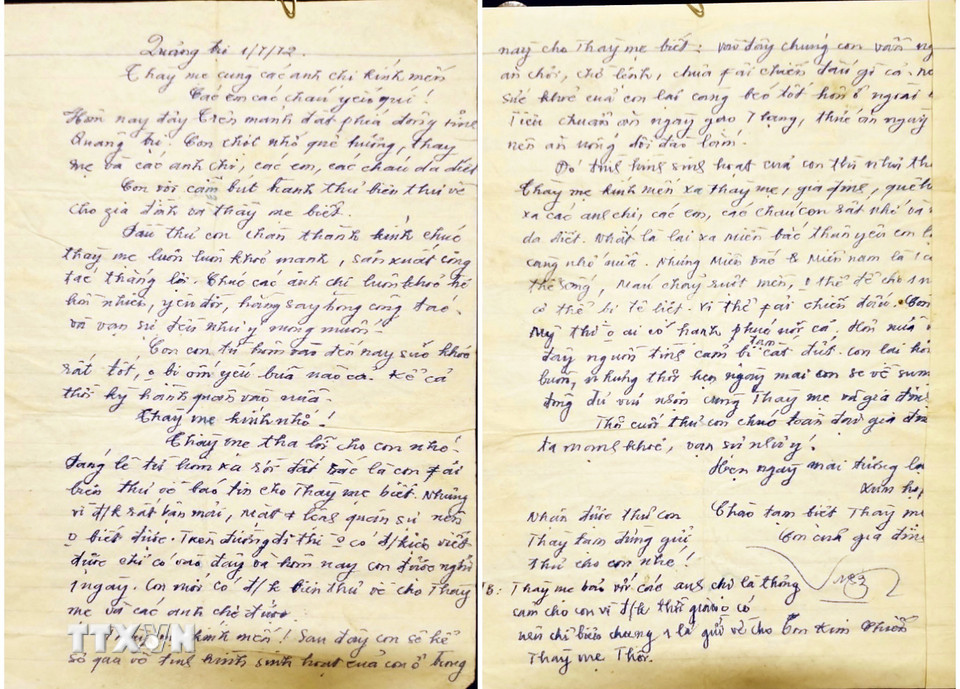 Quảng trị 1/7/72.
Thày mẹ cùng các anh chị kính mến
Các em các cháu yêu quí!
Hôm nay đây trên mảnh đất phía đông tỉnh
Quảng trị. Con chợt nhớ quê hương, thày
mẹ và các anh chị, các em, các cháu da diết
Con vội cầm bút thành thư biên thư về
cho gia đình và thày mẹ biết.
Đầu thư con chân thành kính chúc
thày mẹ luôn luôn khoẻ mạnh, sản xuất công
tác thắng lợi. Chúc các anh chị luôn khoẻ trẻ
hồn nhiên, yêu đời, hăng say trong công tác.
và vạn sự đều như ý mong muốn.
Còn con từ hôm vào đến nay sức khoẻ
rất tốt, o bị ốm yếu bữa nào cả. Kể cả
thời kỳ hành quân vào nữa.
Thày mẹ kính nhớ!
Thày mẹ tha lỗi cho con nhé.
Đáng lẽ từ hôm xa rời đất Bắc là con fải
biên thư về báo tin cho Thày mẹ biết. Nhưng
vì đ/k rất bận mải, mặt # lòng quân sự nên
o biết được. Trên đường đi thì o có đ/kiện viết
được chỉ có vào đây và hôm nay con được nghỉ
1 ngày. Con mới có đ/k biên thư về cho Thày
mẹ và các anh chị được.
kính mến! Sau đây con sẽ kể
sơ qua về tình hình sinh hoạt của con ở trong
TTXVN
này cho Thày mẹ biết: vào đây chúng con vẫn
ăn chơi, chờ lệnh, chưa fải chiến đấu gì cả.
sức khoẻ của con lại càng béo tốt hơn ở ngoài
Tiêu chuẩn ăn ngày thức ăn ngày
nên ăn uống dồi dào lắm.
Đó tình hình sinh hoạt của con thì như
Thày mẹ kính mến xa thày mẹ, gia đình,
xa các anh chị, các em, các cháu con rất nhớ và
da diết. Nhất là lại xa Miền bắc thân yêu con
càng nhớ nữa. Nhưng Miền Bắc & Miền nam là 1
máu chảy ruột mềm, o thể để cho
cơ thể bị tê liệt. Vì thế fải chiến đấu. Còn
Mỹ thì o ai có hạnh phúc nổi cả. Hơn nữa
đây người tình cảm bị tạm cắt đứt. con lại
buồn, nhưng thôi hẹn ngày mai con sẽ về
đông đủ vui cùng Thày mẹ và gia đình
Thôi cuối thư con chúc toàn thể gia đình
ta mạnh khoẻ, vạn sự như ý!
Hẹn ngày mai tương lai
xum họp
Nhận được thư con Chào tạm biệt Thày mẹ
Thày tạm đừng gửi Con của gia đình
thư cho con nhé!
B: Thày mẹ bảo với các anh chị là thông
cảm cho con vì đ/k thời gian o có
nên chỉ biên chung 1 lá gửi về cho
Thày mẹ Thôi.